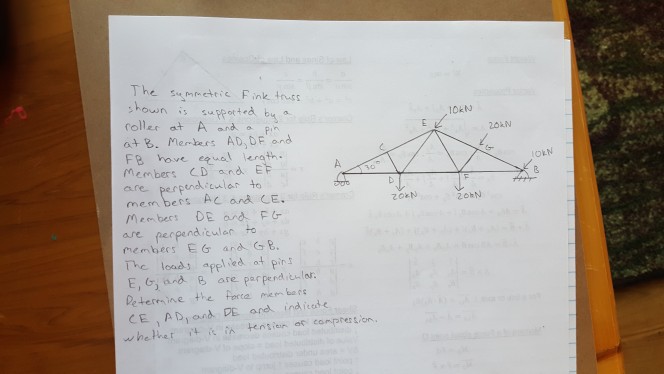 The symmetric Fink truss
shown is supported by a
roller at A and a pin
at B. Members AD, DF and
FB have equal length.
Members CD and EF
are perpendicular to
members AC and CE.
Members DE and FG
are perpendicular to
members EG and GB.
The loads applied at pins
E, G, and B are perpendicular.
Determine the force members
CE, AD, and DE and indicate
whether it is in tension or compression.
E 10kN
20kN
C G
10kN
A 30° B
D F
20kN 20kN